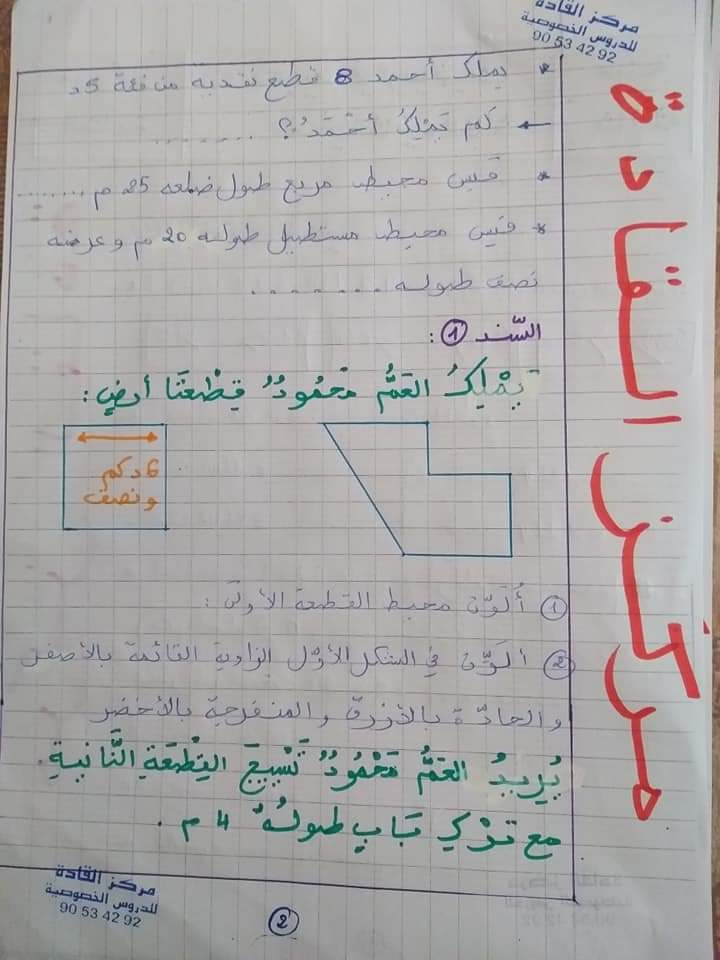 مركز القادة
للدروس الخصوصية
90 53 42 92
* يملك أحمد 8 قطع نقدية من فئة 5د
← كم يَمْلِكُ أحْمَدُ؟ ........
* قيس محيط مربع طول ضلعه 25 م ........
* قيس محيط مستطيل طوله 20 م وعرضه
نصف طوله ........
السّند ①:
يَمْلِكُ العَمُّ مَحْمُودُ قِطْعَتَا أرضٍ:
6 دكم
ونصف
① أُلَوِّن محيط القطعة الأولى:
② ألَوِّن في الشكل الأوّل الزاوية القائمة بالأصفر
والحادّة بالأزرق والمنفرجة بالأخضر
يُرِيدُ العَمُّ مَحْمُودُ تَسْيِيجَ القِطْعَةِ الثَّانِيةِ.
مع تَرْكِ بَابٍ طولُهُ 4 م.
مركز القادة
مركز القادة
للدروس الخصوصية
90 53 42 92
②